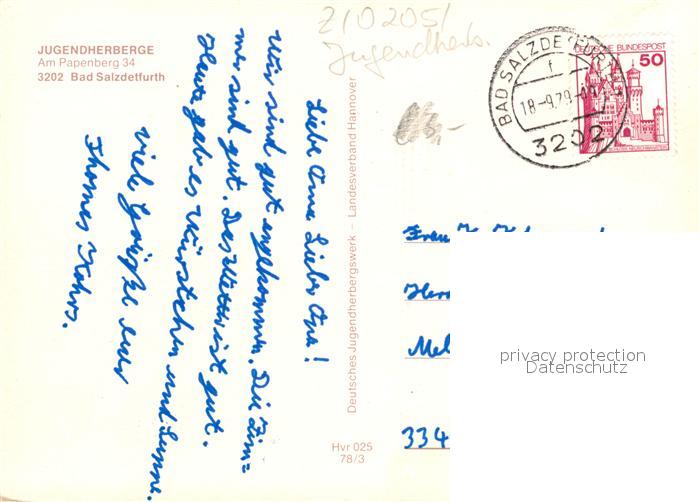 JUGENDHERBERGE
Am Papenberg 34
3202 Bad Salzdetfurth
Z/0205/
Jugendherb.
BAD SALZDETFURTH
f
18-9.79-09
3202
DEUTSCHE BUNDESPOST
50
Liebe Oma Lieber Opa!
Wir sind gut angekommen. Die Zim=
mer sind gut. Das Wetter ist gut.
Heute gab es Würstchen und Suppe.
Viele Grüße euer
Thomas
Deutsches Jugendherbergswerk – Landesverband Hannover
Hvr 025
78/3
Frau
334
privacy protection
Datenschutz